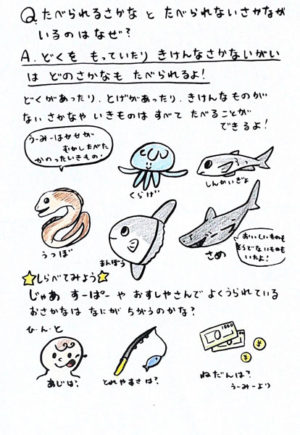 Q. たべられるさかな と たべられないさかなが
いるのはなぜ?
A. どくを もっていたり きけんなさかないがい
は どのさかなも たべられるよ!
どくがあったり、とげがあったり、きけんなものが
ない さかなや いきものは すべて たべることが
できるよ!
うーみーはかせが
むかしたべた
かわったいきもの!
くらげ
しんかいぎょ
うつぼ
まんぼう
さめ
おいしいものも
そうでないものも
いたよ!
しらべてみよう
じゃあ すーぱー や おすしやさんで よくうられている
おさかなは なにが ちがうのかな?
ひ・ん・と
あじは?
とれやすさは?
ねだんは?
うーみーより